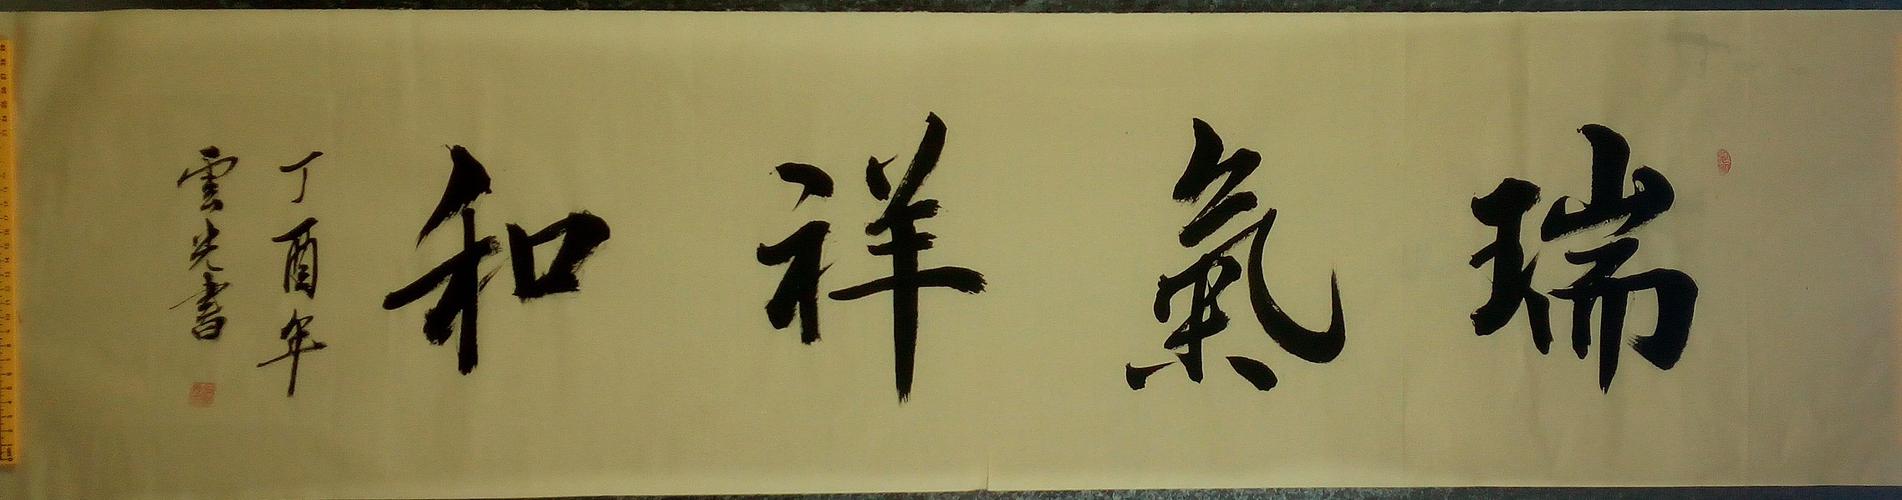 瑞氣祥和
丁酉年
雲光書